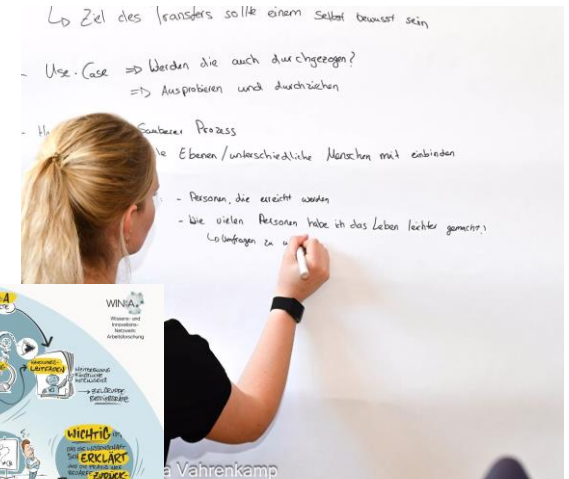 ↳ Ziel des Transfers sollte einem selbst bewusst sein
- Use-Case => Werden die auch durchgezogen?
=> Ausprobieren und durchziehen
- Sauberer Prozess
Ebenen/unterschiedliche Menschen mit einbinden
- Personen, die erreicht werden
- Wie vielen Personen habe ich das Leben leichter gemacht?
↳ Umfragen zu
WIN:A
Wissens- und
Innovations-
Netzwerk
Arbeitsforschung
LEITFADEN
WICHTIG
ERKLÄRT
ZURÜCK-
Vahrenkamp